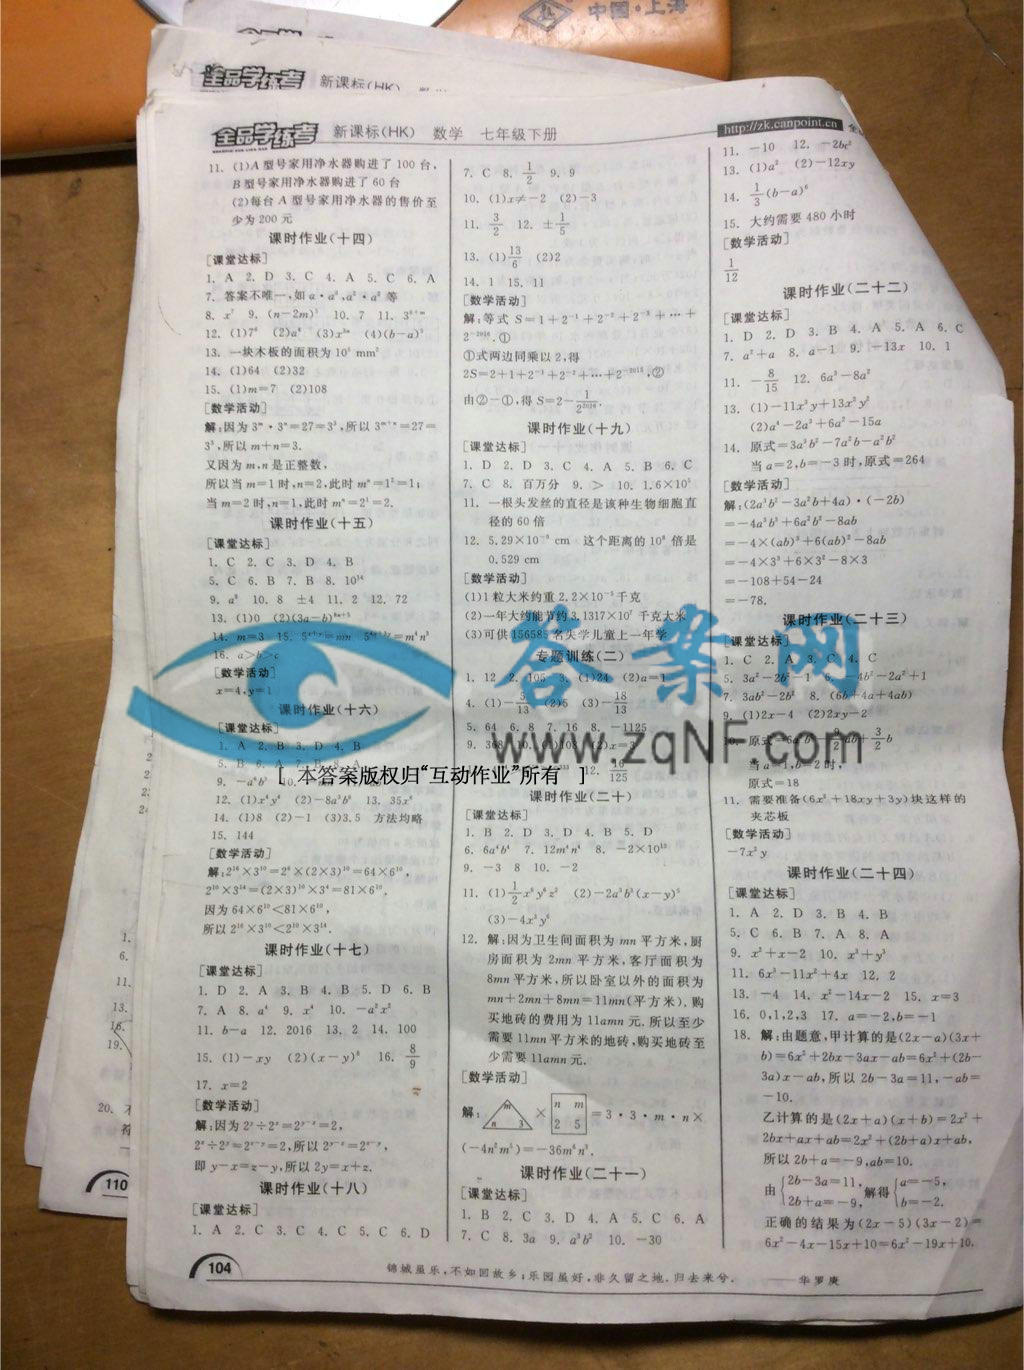 中国·上海
全品学练考
新课标(HK)
全品学练考 新课标(HK) 数学 七年级下册
http://zk.canpoint.cn
11. (1)A型号家用净水器购进了100台,
B型号家用净水器购进了60台
(2)每台A型号家用净水器的售价至
少为200元
课时作业(十四)
[课堂达标]
1. A 2. D 3. C 4. A 5. C 6. A
7. 答案不唯一,如
12. (1)7⁶
13. 一块木板的面积为
14. (1)64 (2)32
15. (1)m=7 (2)108
[数学活动]
解:因为3ᵐ·3ⁿ=27=3³,所以3ᵐ⁺ⁿ=27=
3³,所以m+n=3.
又因为m,n是正整数,
所以当m=1时,n=2,此时mⁿ=1²=1;
当m=2时,n=1,此时mⁿ=2¹=2.
课时作业(十五)
[课堂达标]
1. C 2. C 3. D 4. B
5. C 6. B 7. B 8. 10¹⁴
10. 8 ±4 11. 2 12. 72
16. a>b>c
[数学活动]
x=4,y=1
课时作业(十六)
[课堂达标]
1. A 2. B 3. D 4. B
14. (1)8 (2)-1 (3)3.5 方法均略
15. 144
[数学活动]
解:2¹⁶×3¹⁰=2⁶×(2×3)¹⁰=64×6¹⁰,
2¹⁰×3¹⁴=(2×3)¹⁰×3⁴=81×6¹⁰.
因为64×6¹⁰<81×6¹⁰,
所以2¹⁶×3¹⁰<2¹⁰×3¹⁴.
课时作业(十七)
[课堂达标]
1. D 2. A 3. B 4. B 5. D 6. B
7. A 8. a⁴ 9. x⁴ 10. -a²x²
11. b-a 12. 2016 13. 2 14. 100
15. (1)-xy 16. 8/9
17. x=2
[数学活动]
解:因为2ʸ÷2ˣ=2ʸ⁻ˣ=2,
2ᶻ÷2ʸ=2ᶻ⁻ʸ=2,所以2ʸ⁻ˣ=2ᶻ⁻ʸ,
即y-x=z-y,所以2y=x+z.
课时作业(十八)
[课堂达标]
1. A 2. C 3. C 4. C 5. C 6. D
7. C 8. 1/2 9. 9
10. (1)x≠-2 (2)-3
11. 3/2 12. ±1/5
13. (1)13/6 (2)2
14. 1 15. 11
[数学活动]
解:等式S=1+2⁻¹+2⁻²+2⁻³+…+
2⁻²⁰¹⁶.①
①式两边同乘以2,得
2S=2+1+2⁻¹+2⁻²+…+2⁻²⁰¹⁵,②
由②-①,得S=2-1/2²⁰¹⁶.
课时作业(十九)
[课堂达标]
1. D 2. D 3. C 4. A 5. B 6. C
7. C 8. 百万分 9. > 10. 1.6×10⁵
11. 一根头发丝的直径是该种生物细胞直
径的60倍
12. 5.29×10⁻⁹ cm 这个距离的10⁸倍是
0.529 cm
[数学活动]
(1)1粒大米约重2.2×10⁻⁵千克
(2)一年大约能节约3.1317×10⁷千克大米
(3)可供156585名失学儿童上一年学
专题训练(二)
1. 12 2. 105 3. (1)24 (2)a=1
4. (1)-5/13 (2)5 (3)-18/13
5. 64 6. 8 7. 16 8. -1125
课时作业(二十)
[课堂达标]
1. B 2. D 3. D 4. B 5. D
6. 6a⁴b⁴ 7. 12m⁴n⁴ 8. -2×10¹³
9. -3 8 10. -2
12. 解:因为卫生间面积为mn平方米,厨
房面积为2mn平方米,客厅面积为
8mn平方米,所以卧室以外的面积为
mn+2mn+8mn=11mn(平方米).购
买地砖的费用为11amn元.所以至少
需要11mn平方米的地砖,购买地砖至
少需要11amn元.
[数学活动]
解: m n 3 × n m 2 5 =3·3·m·n×
(-4n²m⁵)=-36m⁶n³.
课时作业(二十一)
[课堂达标]
1. B 2. C 3. D 4. A 5. C 6. A
7. C 8. 3a 9. a³b² 10. -30
11. -10 12. -2bc²
13. (1)a² (2)-12xy
14. 1/3(b-a)⁶
15. 大约需要480小时
[数学活动]
1/12
课时作业(二十二)
[课堂达标]
1. D 2. D 3. B 4. A 5. A 6. C
7. a²+a 8. a-1 9. -13x 10. 1
11. -8/15 12. 6a³-8a²
13. (1)-11x³y+13x²y²
(2)a⁴-2a³+6a²-15a
14. 原式=3a³b²-7a²b-a²b²
当a=2,b=-3时,原式=264
[数学活动]
解:(2a³b²-3a²b+4a)·(-2b)
=-4a³b³+6a²b²-8ab
=-4×(ab)³+6(ab)²-8ab
=-4×3³+6×3²-8×3
=-108+54-24
=-78.
课时作业(二十三)
[课堂达标]
1. C 2. A 3. C 4. C
7. 3ab²-2b² 8. (6b+4a+4ab)
9. (1)2x-4 (2)2xy-2
当a=1,b=2时,
原式=18
11. 需要准备(6x²+18xy+3y)块这样的
夹芯板
[数学活动]
-7x²y
课时作业(二十四)
[课堂达标]
1. A 2. D 3. B 4. B
5. C 6. B 7. A 8. A
9. x²+x-2 10. x³+y³
11. 6x³-11x²+4x 12. 2
13. -4 14. x²-14x-2 15. x=3
16. 0,1,2,3 17. a=-2,b=-1
18. 解:由题意,甲计算的是(2x-a)(3x+
b)=6x²+2bx-3ax-ab=6x²+(2b-
3a)x-ab,所以2b-3a=11,-ab=
-10.
乙计算的是(2x+a)(x+b)=2x²+
2bx+ax+ab=2x²+(2b+a)x+ab,
所以2b+a=-9,ab=10.
由{2b-3a=11, 2b+a=-9, 解得{a=-5, b=-2.
正确的结果为(2x-5)(3x-2)=
6x²-4x-15x+10=6x²-19x+10.
答案网
www.zqNF.com
[ 本答案版权归“互动作业”所有 ]
110
104
锦城虽乐,不如回故乡;乐园虽好,非久留之地.归去来兮.
——华罗庚